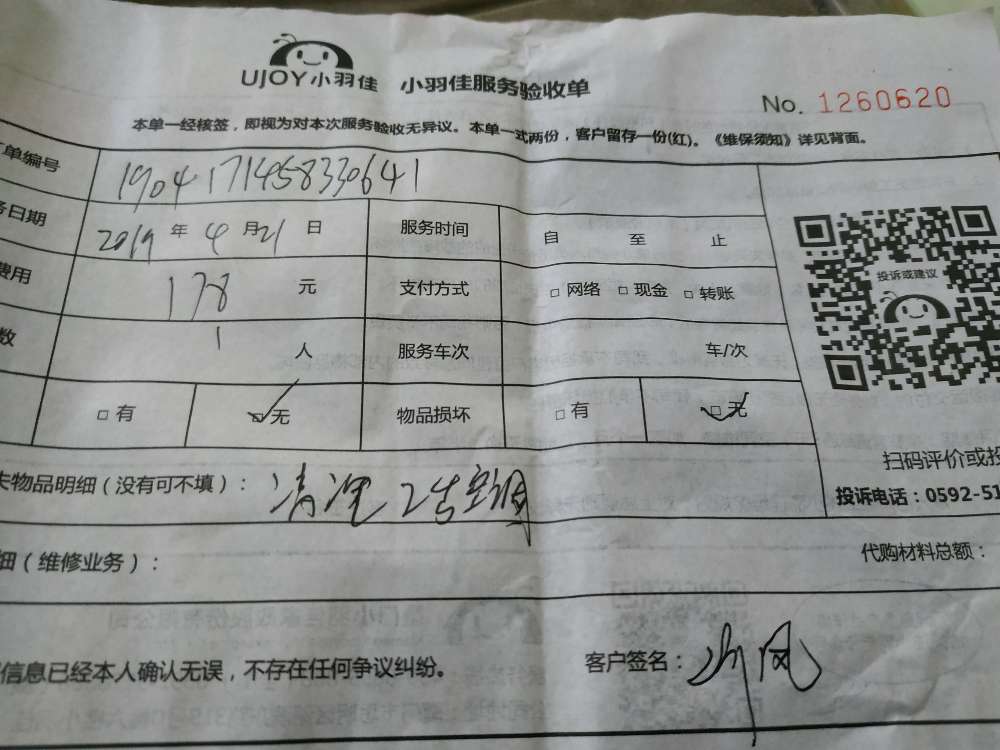 UJOY小羽佳 小羽佳服务验收单
No. 1260620
本单一经核签，即视为对本次服务验收无异议。本单一式两份，客户留存一份(红)。《维保须知》详见背面。
单编号 190417145833064 1
务日期 2019 年 4 月 21 日 服务时间 自 至 止
费用 178 元 支付方式 □ 网络 □ 现金 □ 转账
数 1 人 服务车次 车/次
□ 有 □ 无 物品损坏 □ 有 □ 无
投诉或建议
扫码评价或投
投诉电话：0592-51
失物品明细（没有可不填）： 清洗 2台空调
细（维修业务）： 代购材料总额：
信息已经本人确认无误，不存在任何争议纠纷。 客户签名：